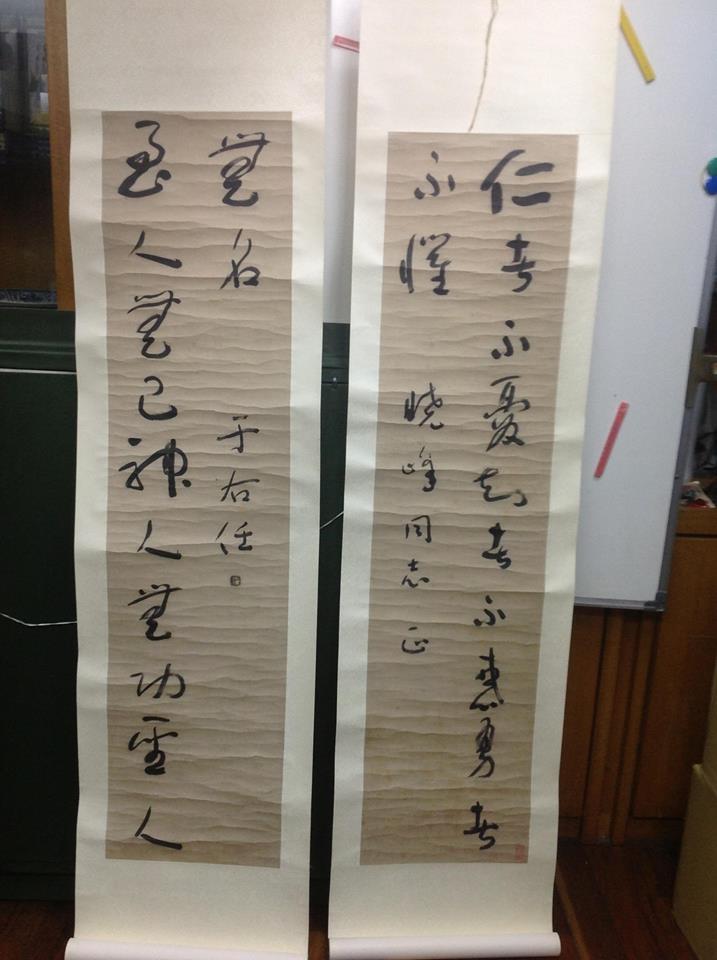 仁者不憂知者不惑勇者
不懼
曉峰同志正
至人無己神人無功聖人
無名
于右任